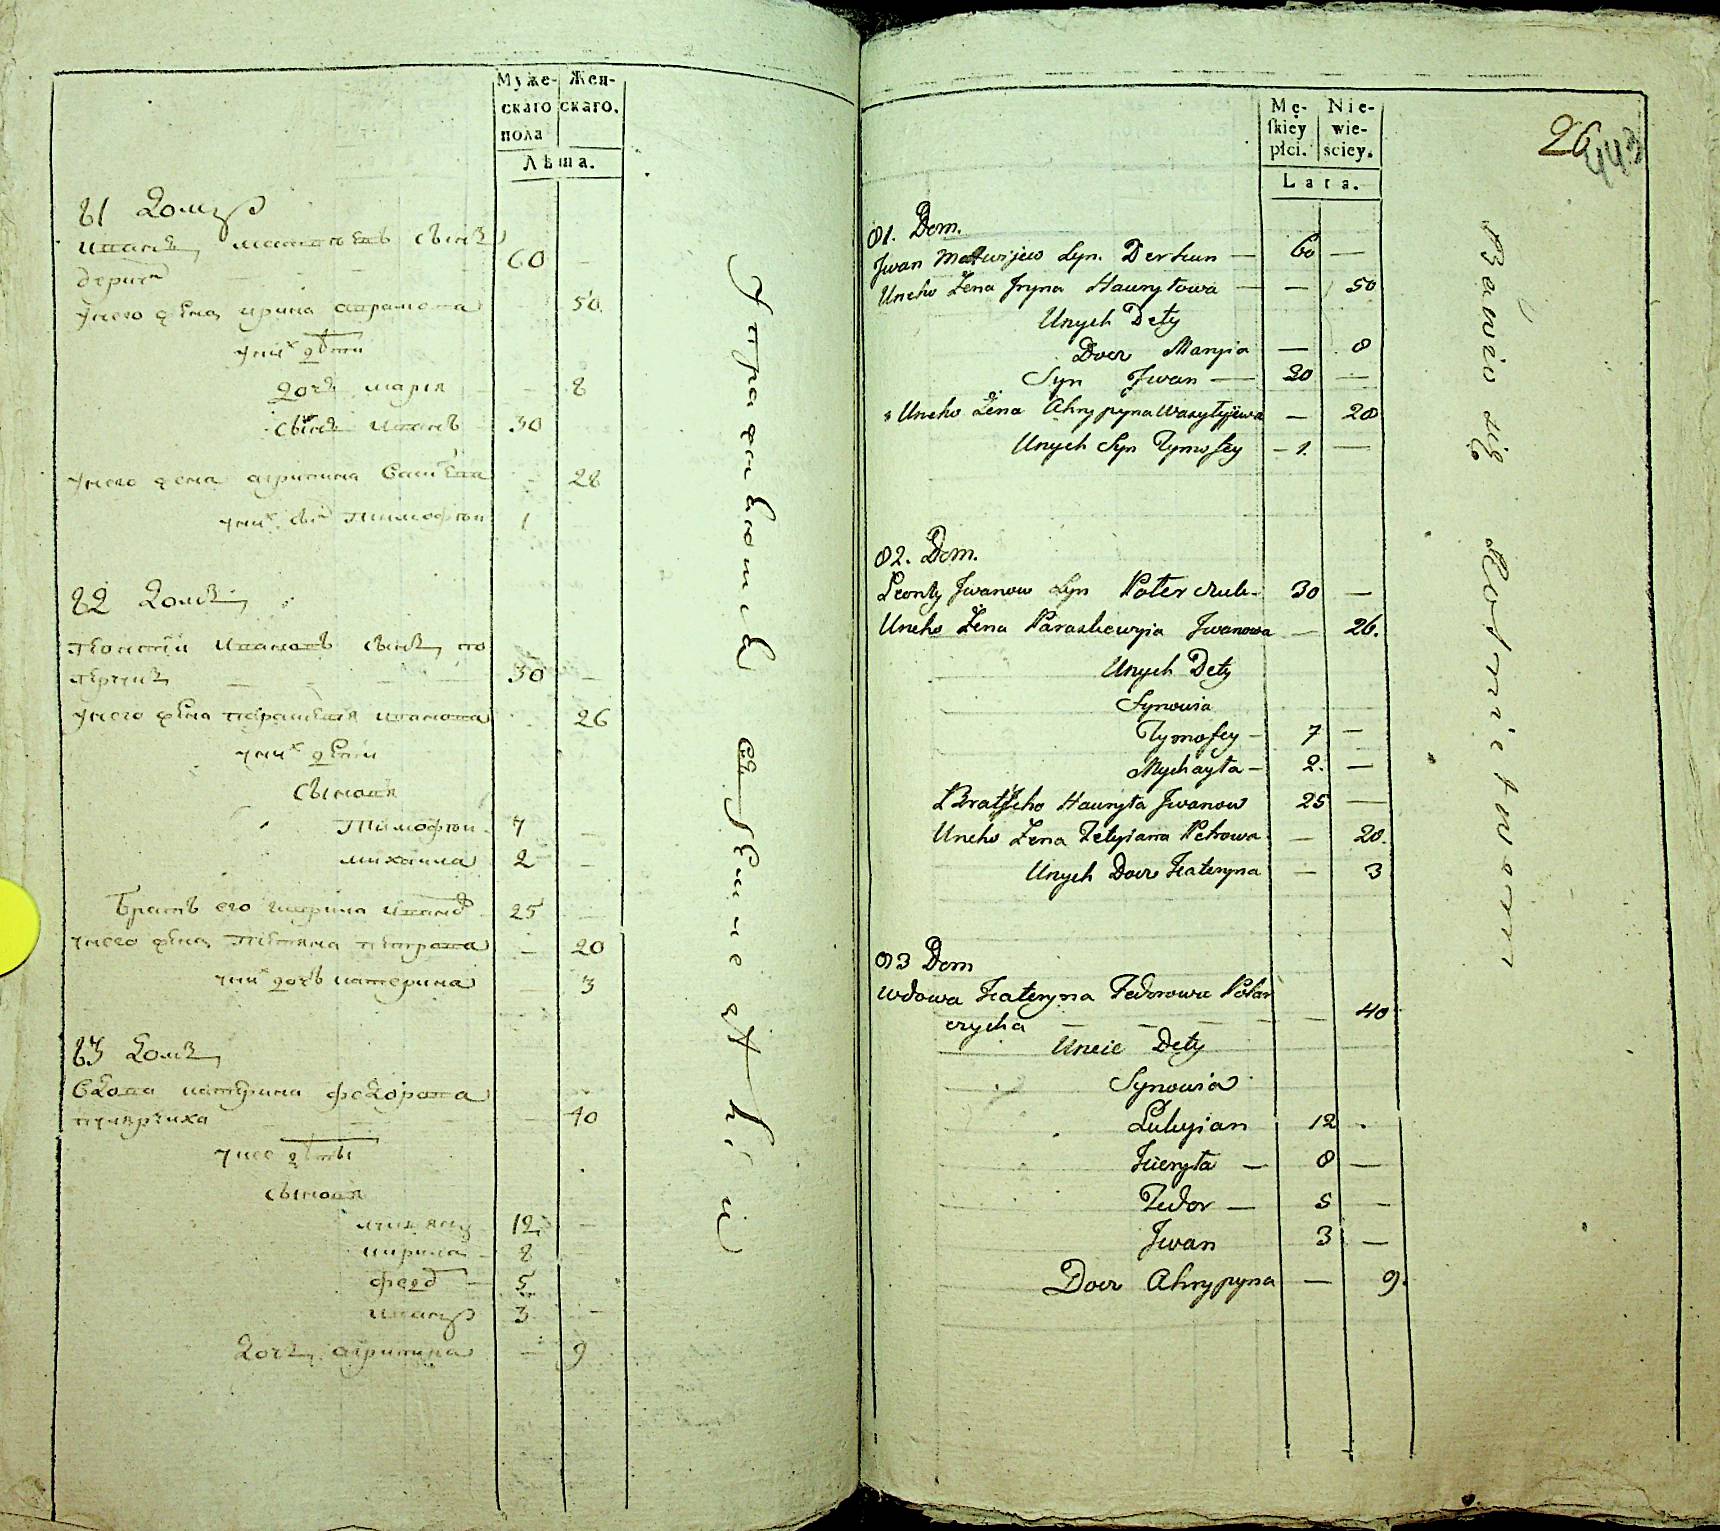 Муже-
скаго
пола
Жен-
скаго.
Лѣта.
81 Домъ
Иванъ Матвѣевъ сынъ
60
Унего жена Ирина
50
Уних дѣти
дочь Мария - 8
сынъ Иванъ 30
Унего жена Агрипина
28
Уних сын Тимофѣй 1
82 Домъ
Иванов сынъ
30
Унего жена Парасковия Иванова 26
Уних дѣти
сыновя
Тимофѣй 7 -
Михаила 2 -
Братъ его Гаврила Иванов 25
Унего жена Татяна Петрова - 20
Уних дочь Катерина 3
83 Домъ
Вдова Катерина Федорова
40
Унее дѣти
сыновя
12 -
Кирила 8 -
Федор 5
Иванъ 3 -
дочь Агрипина - 9
Mę-
skiey
płci.
Nie-
wie-
sciey.
Lata.
26
443
81. Dom.
Jwan Matwijew Syn. Derkun — 60 —
Uneho Żena Jryna Hawryłowa — — 50
Unych Dety
Docz Maryia — 8
Syn Jwan — 30 —
Uneho Żena Ahrypyna Wasyłyjewa — 28
Unych Syn Tymofey — 1. —
82. Dom.
Leonty Jwanow Syn 30 —
Uneho Żena Paraskewyia Jwanowa — 26.
Unych Dety
Synowia
Tymofey — 7 —
Mychayła — 2. —
Brat Jeho Hawryła Jwanow 25 —
Uneho Żena Tetyiana Petrowa — 20.
Unych Docz Kateryna — 3
83 Dom
Wdowa Kateryna Fedorowa
czycha — — — — 40
Uneie Dety
Synowia
Lukyian 12 -
Kieryła — 8 —
Fedor — 5 —
Jwan 3 —
Docz Ahrypyna — 9.
Bawią się Rolnictwem